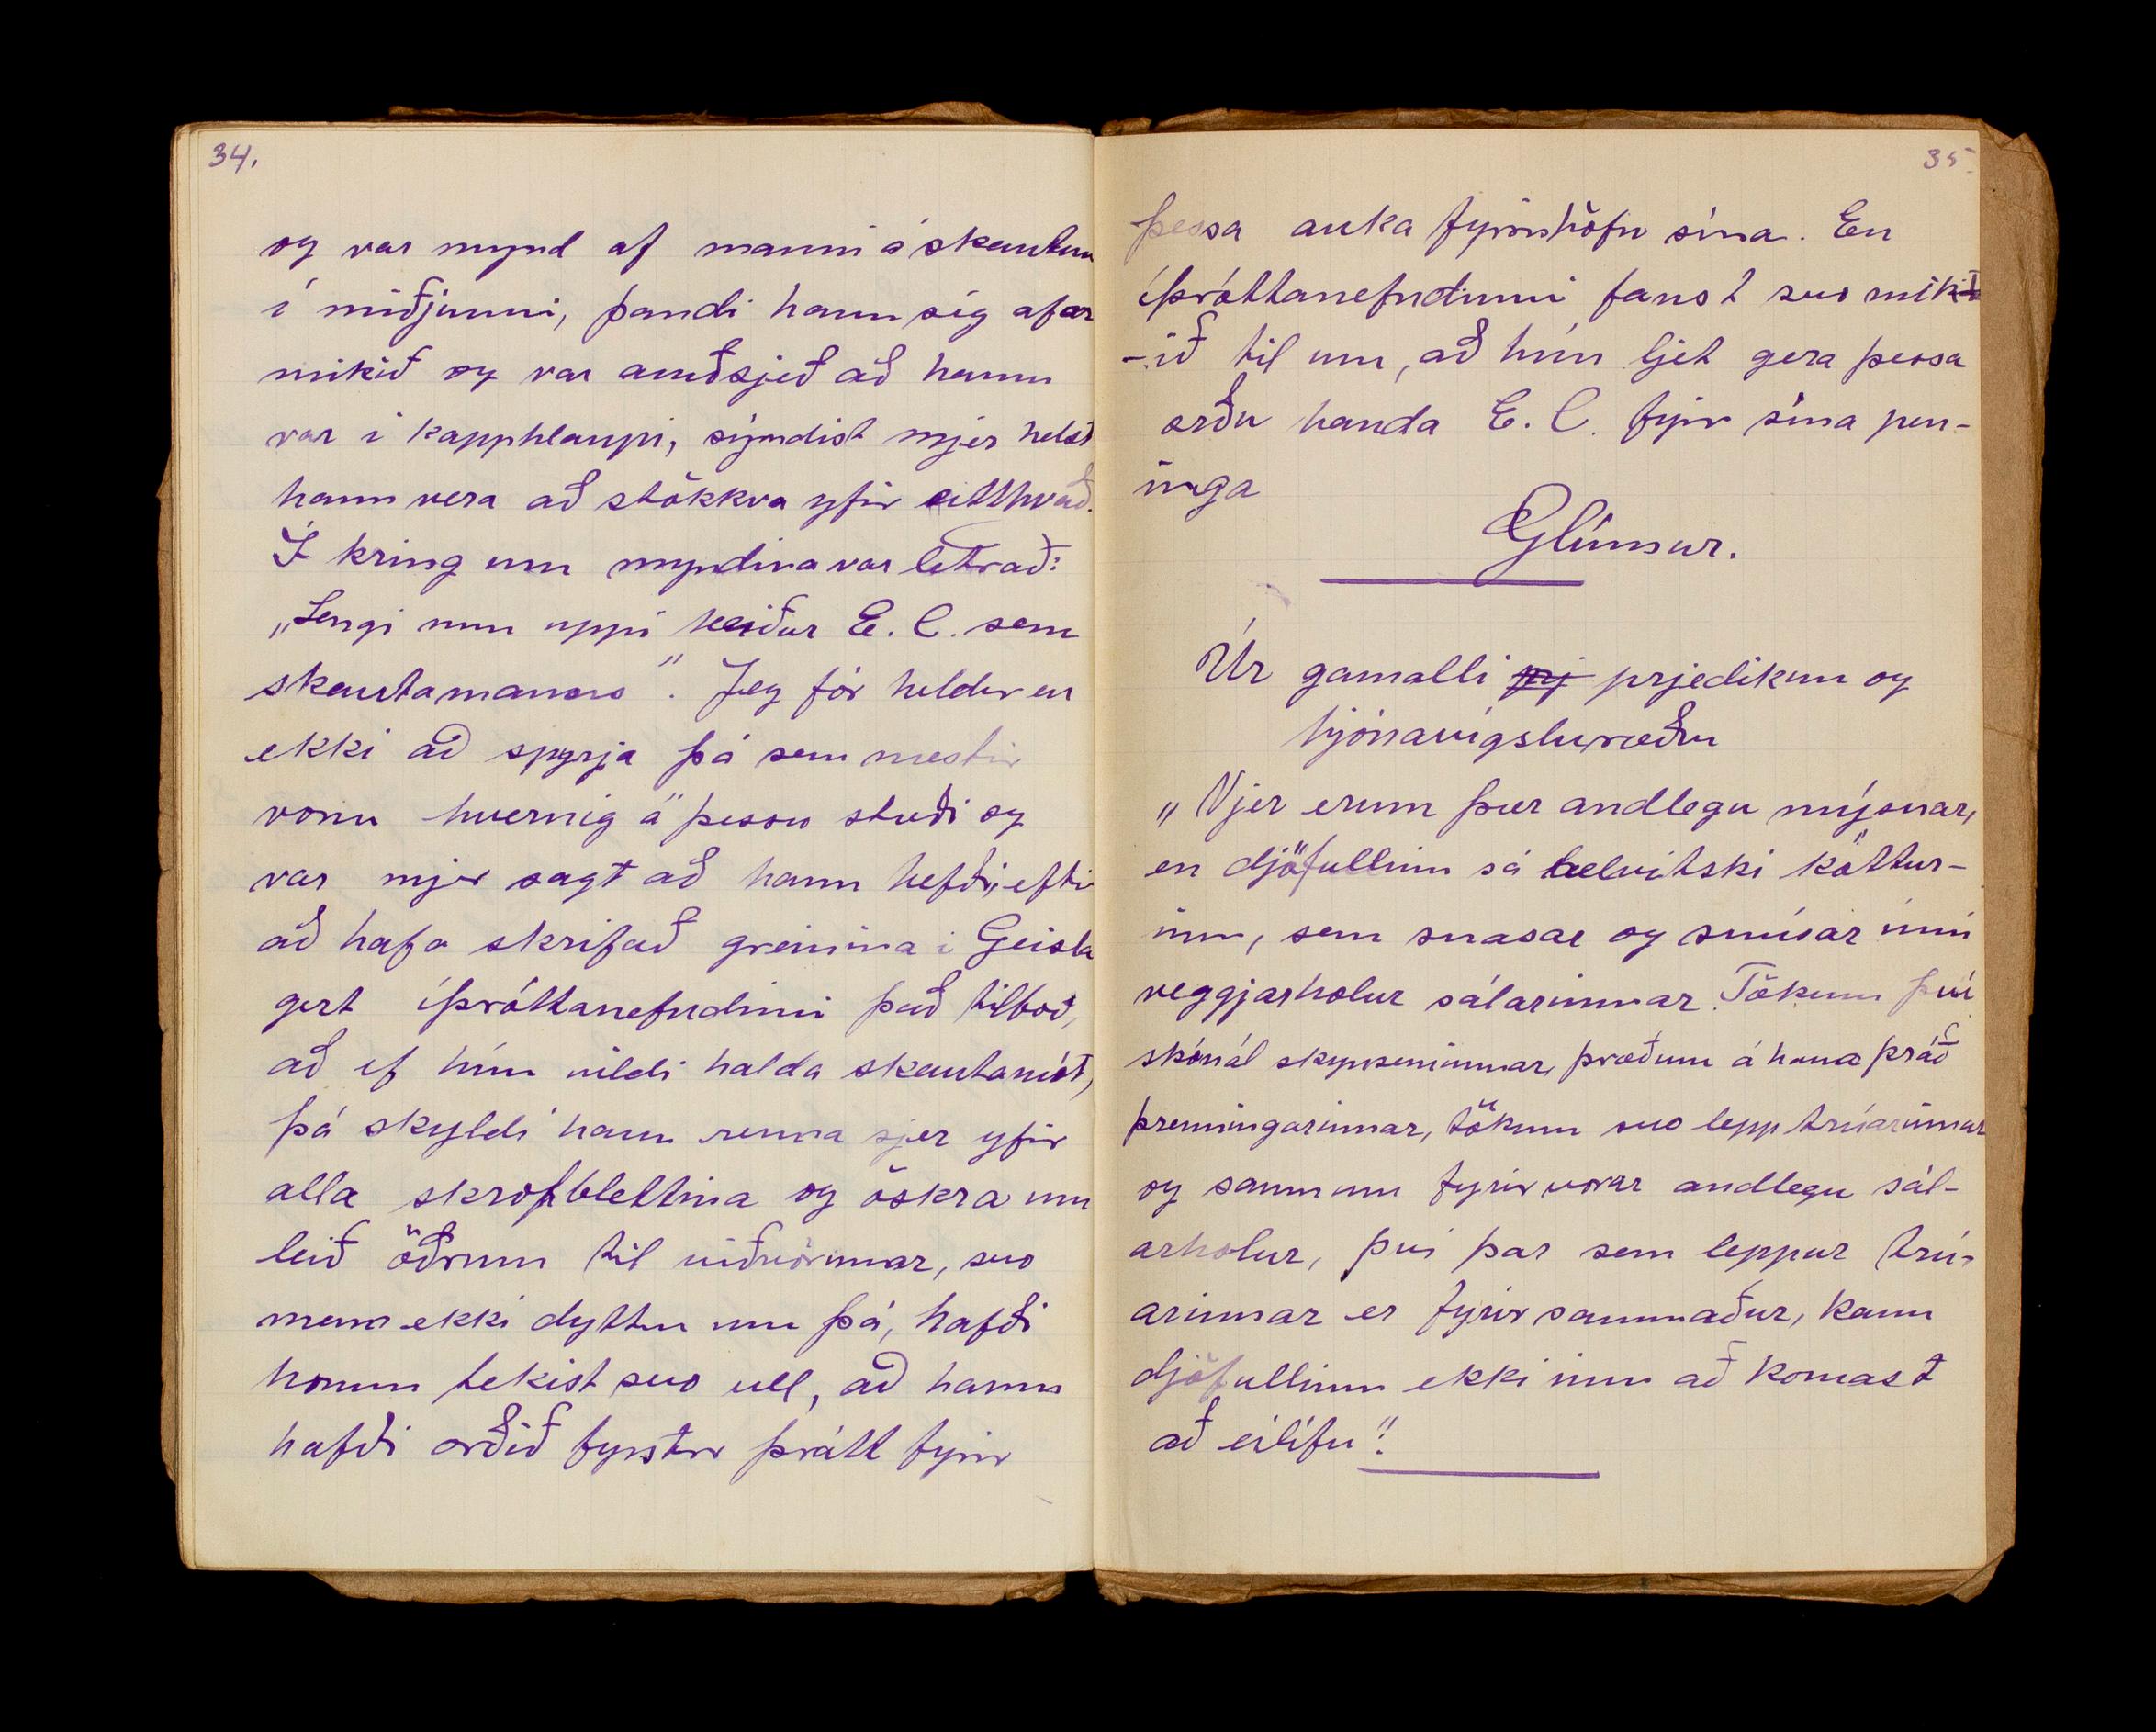 34.
og var mynd af manni á skautum
í miðjunni, þandi hann sig afar
mikið og var auðsjeð að hann
var í kapphlaupi, sýndist mjer helst
hann vera að stökkva yfir eitthvað.
Í kring um myndina var letrað:
„Lengi mun uppi heiður E. C. sem
skautamanns". Jeg fór heldur en
ekki að spyrja þá sem næstir
voru hvernig á þessu stæði og
var mjer sagt að hann hefði, eftir
að hafa skrifað greinina í Geisla
gert íþróttanefndinni það tilboð,
að ef hún vildi halda skautamót,
þá skyldi hann renna sjer yfir
alla skrofblettina og öskra um
leið öðrum til viðvörunar, svo
menn ekki dyttu um þá, hafði
honum tekist svo vel, að hann
hafði orðið fyrstur þrátt fyrir
35.
þessa auka fyrirhöfn sína. En
íþróttanefndinni fanst svo mik
-ið til um, að hún ljet gera þessa
orðu handa E. C. fyrir sína pen-
inga
Glúmur.
Úr gamalli prjedikun og
hjónavígsluræðu
„Vjer erum þær andlegu mýsnar,
en djöfullinn sá helvitski köttur-
inn, sem snasar og snúsar inní
veggjarholur sálarinnar. Tökum því
skónál skynseminnar, þræðum á hana þráð
þrenningarinnar, tökum svo lepp trúarinnar
og saumum fyrir vorar andlegu sál-
arholur, því þar sem leppur trú-
arinnar er fyrir saumaður, kann
djöfullinn ekki inn að komast
að eilífu".